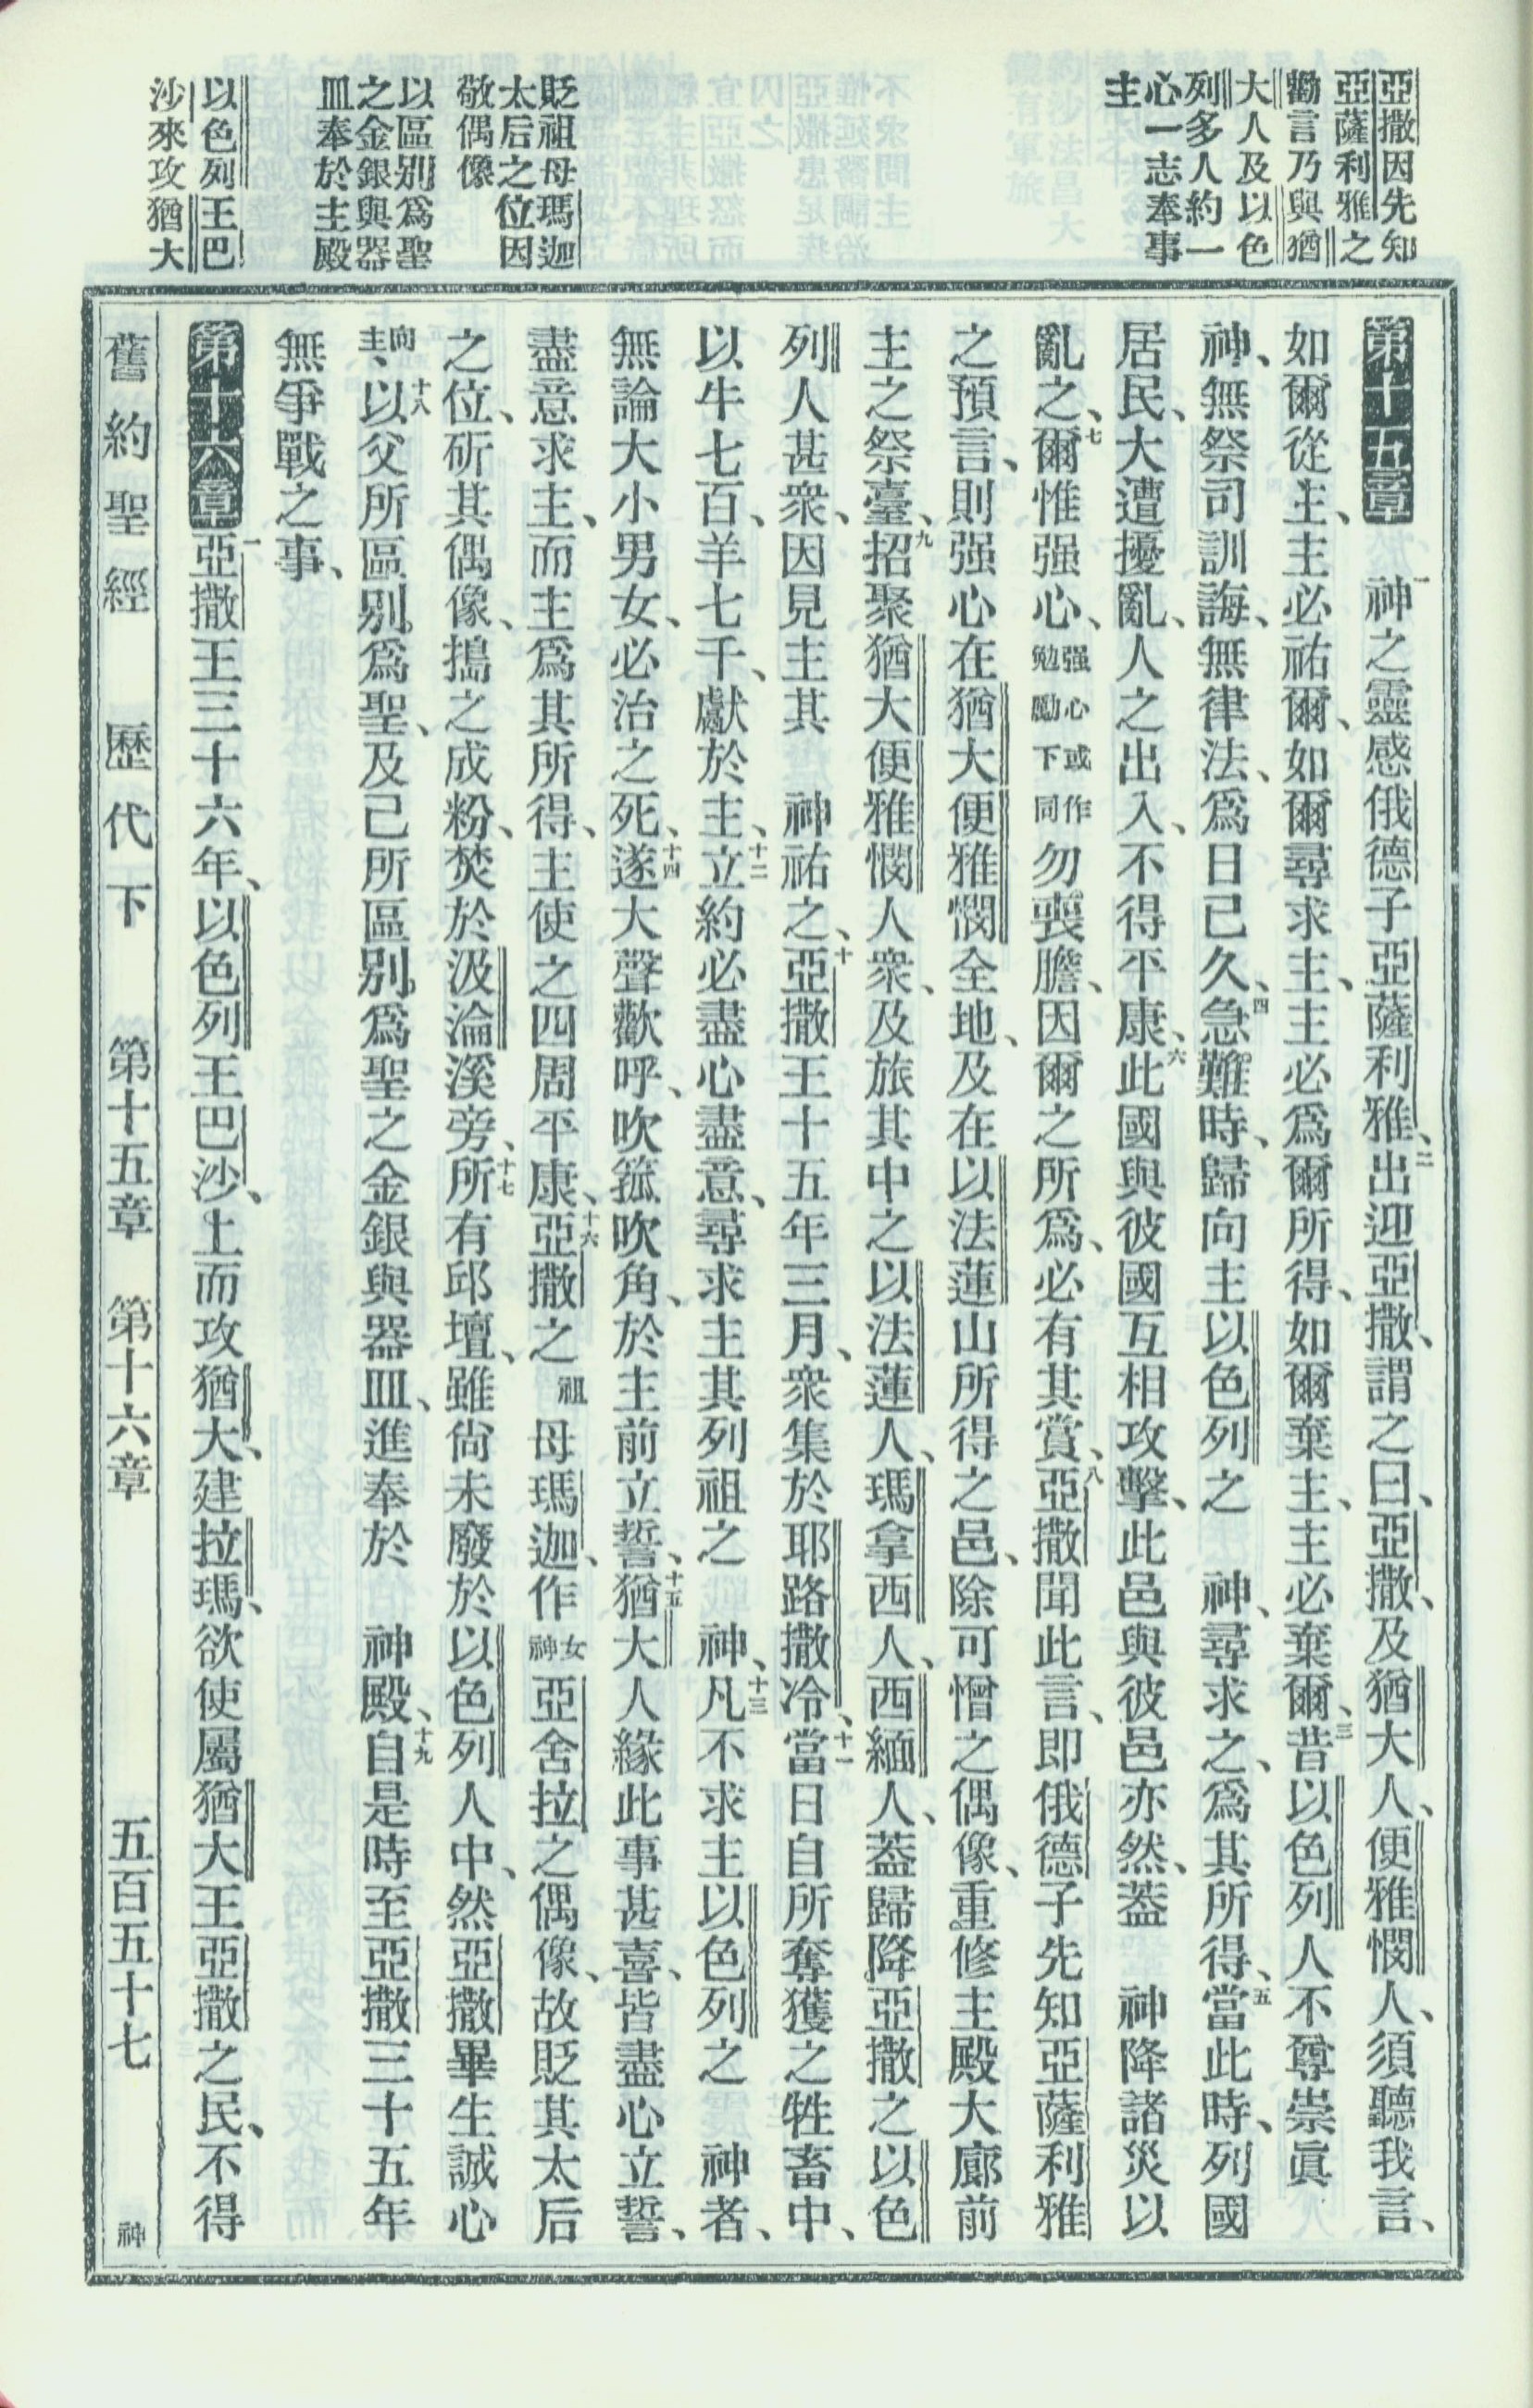 亞撒因先知
亞薩利雅之
勸言乃與猶
大人及以色
列多人約一
心一志奉事
主
貶祖母瑪迦
太后之位因
敬偶像
以區别爲聖
之金銀與器
皿奉於主殿
以色列王巴
沙來攻猶大
第十五章 一神之靈感俄德子亞薩利雅、二出迎亞撒、謂之曰、亞撒、及猶大人、便雅憫人、須聽我言、
如爾從主、主必祐爾、如爾尋求主、主必爲爾所得、如爾棄主、主必棄爾、三昔以色列人不尊崇眞
神、無祭司訓誨、無律法、爲日已久、四急難時、歸向主以色列之 神、尋求之、爲其所得、五當此時、列國
居民、大遭擾亂、人之出入、不得平康、六此國與彼國互相攻擊、此邑與彼邑亦然、蓋 神降諸災以
亂之、七爾惟强心、强心或作勉勵下同勿喪膽、因爾之所爲、必有其賞、八亞撒聞此言、即俄德子先知亞薩利雅
之預言、則强心在猶大便雅憫全地、及在以法蓮山所得之邑、除可憎之偶像、重修主殿大廊前
主之祭臺、九招聚猶大便雅憫人衆、及旅其中之以法蓮人、瑪拿西人、西緬人、蓋歸降亞撒之以色
列人甚衆、因見主其 神祐之、十亞撒王十五年三月、衆集於耶路撒冷、十一當日自所奪獲之牲畜中、
以牛七百、羊七千、獻於主、十二立約必盡心盡意、尋求主其列祖之 神、十三凡不求主以色列之 神者、
無論大小男女、必治之死、十四遂大聲歡呼、吹箛吹角、於主前立誓、十五猶大人緣此事甚喜、皆盡心立誓、
盡意求主、而主爲其所得、主使之四周平康、十六亞撒之祖母瑪迦、作女神亞舍拉之偶像、故貶其太后
之位、斫其偶像、搗之成粉、焚於汲淪溪旁、十七所有邱壇、雖尙未廢於以色列人中、然亞撒畢生誠心
向主、十八以父所區别爲聖、及己所區别爲聖之金銀與器皿、進奉於 神殿、十九自是時至亞撒三十五年
無爭戰之事、
第十六章 一亞撒王三十六年、以色列王巴沙、上而攻猶大、建拉瑪、欲使屬猶大王亞撒之民、不得
舊約聖經 歷代下 第十五章 第十六章 五百五十七 神